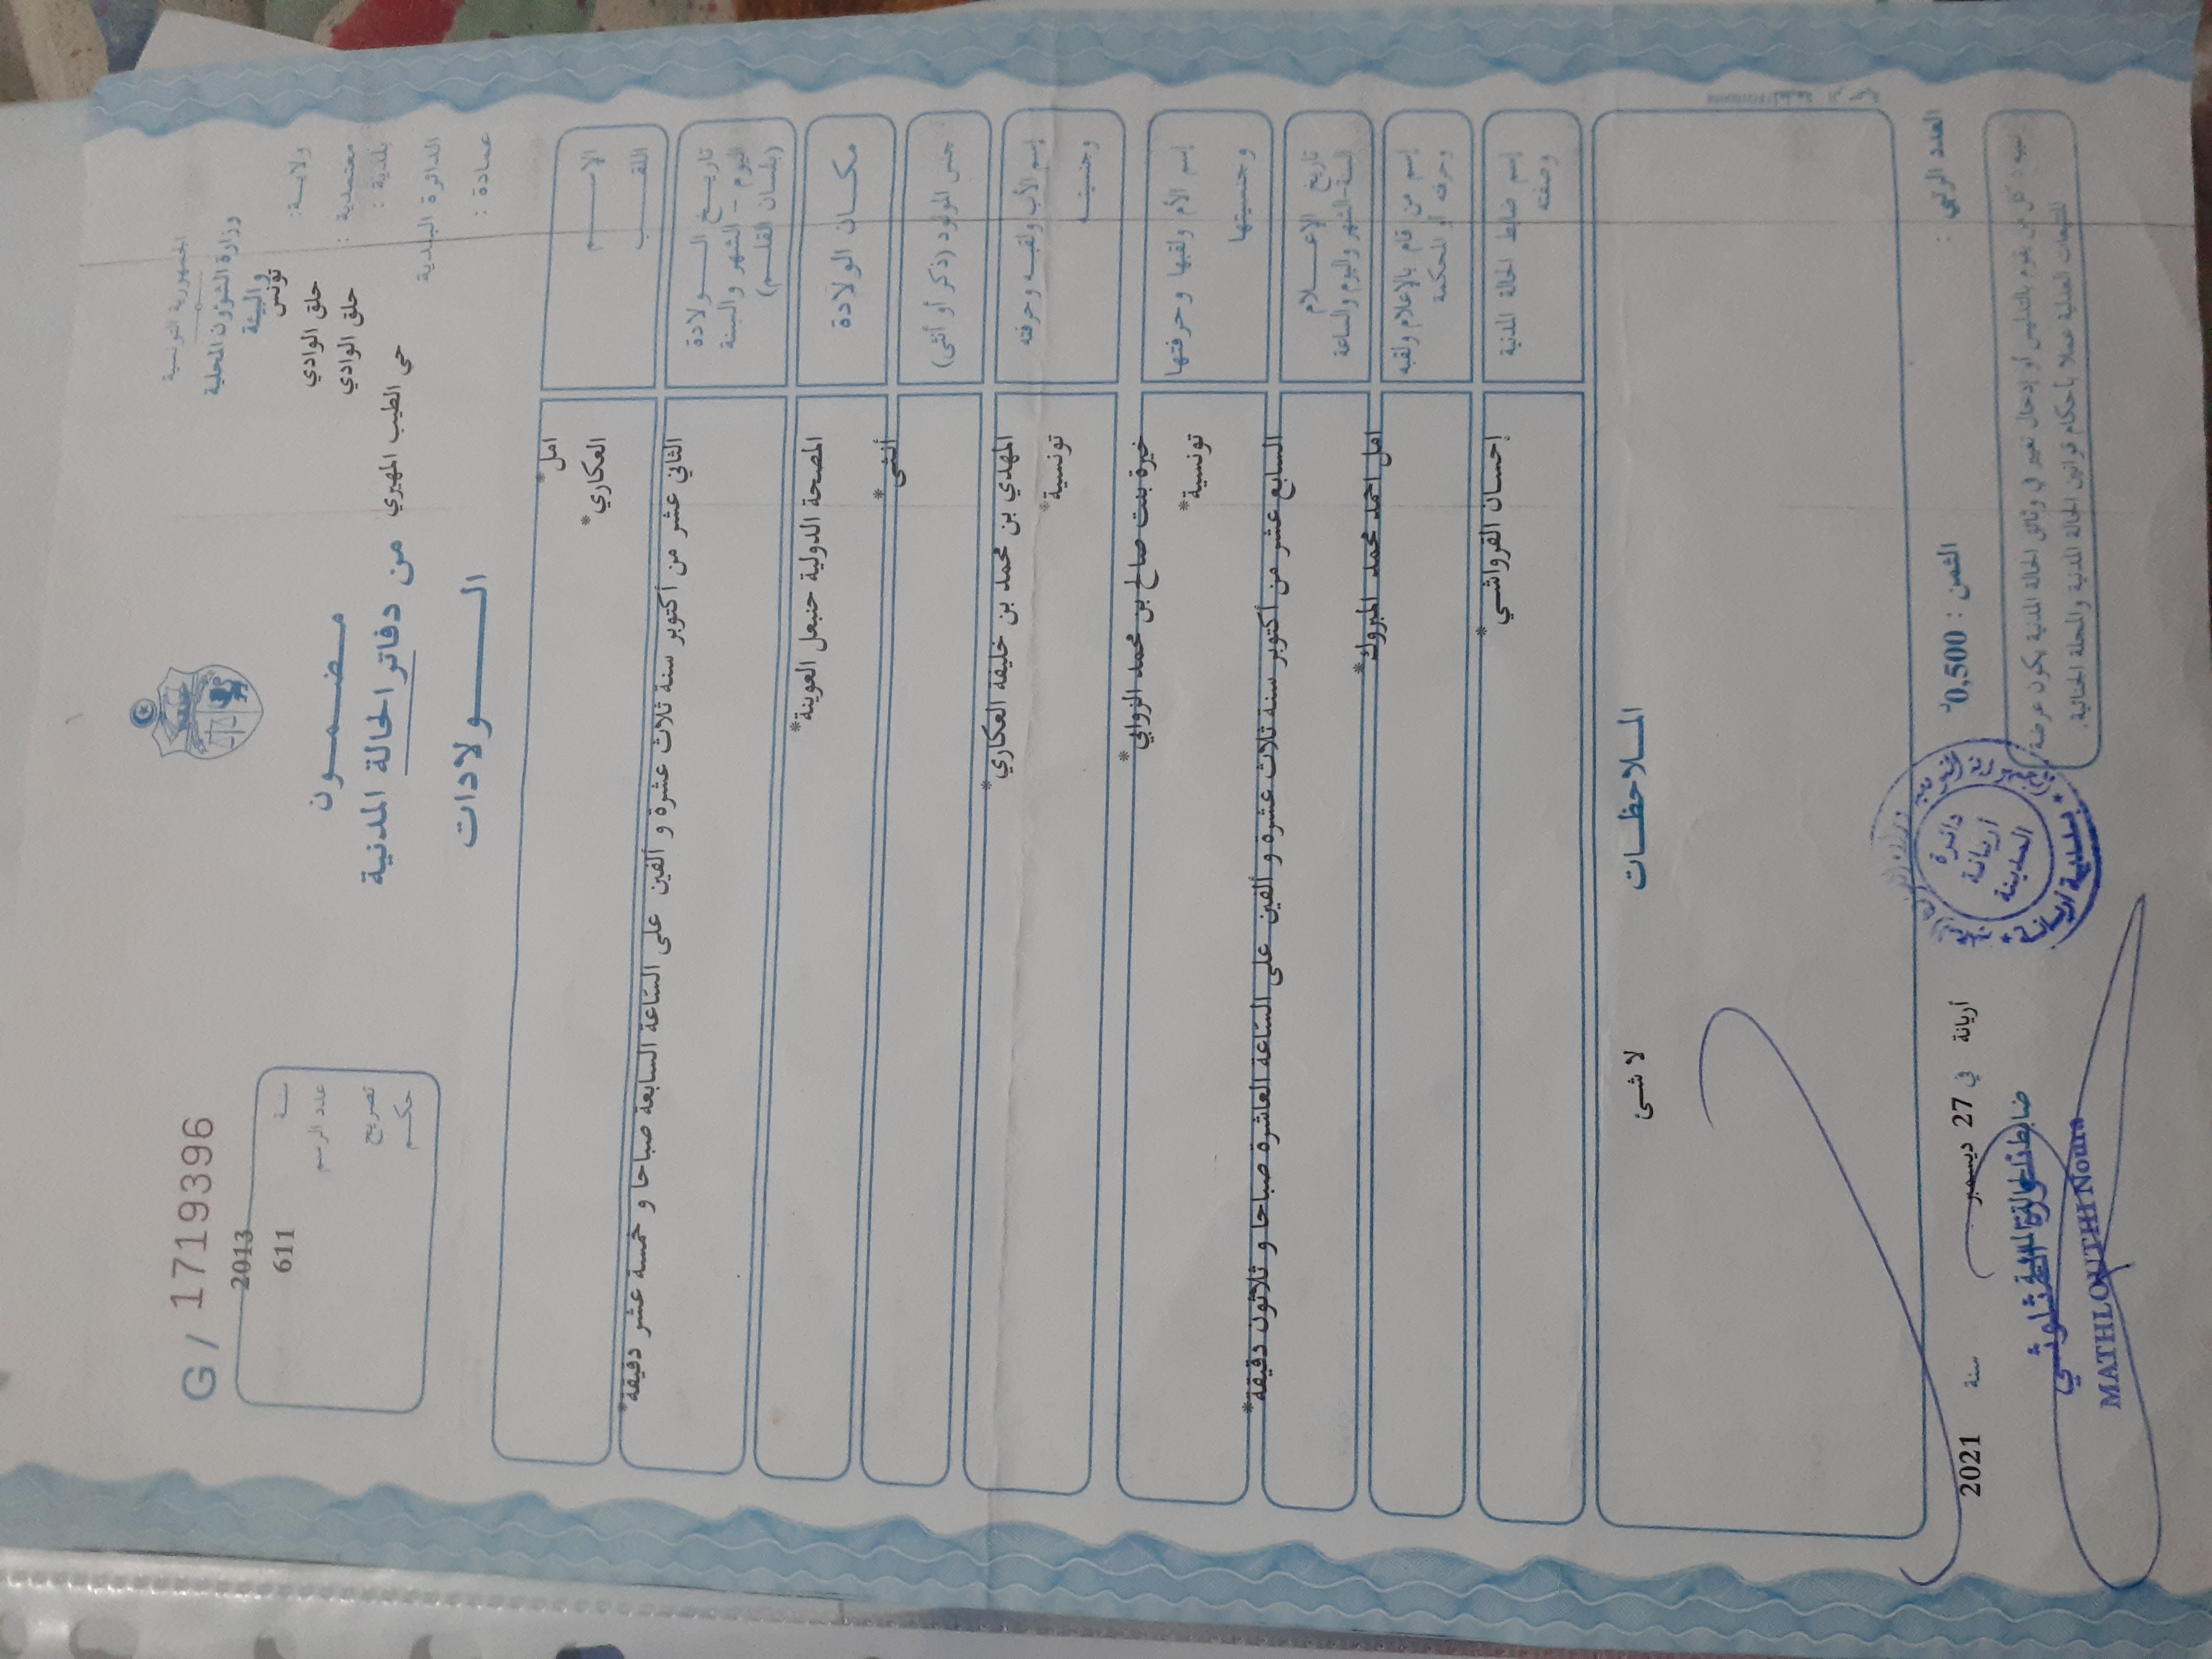 الجمهورية التونسية
وزارة الشؤون المحلية
والبيئة
ولاية: تونس
معتمدية : حلق الوادي
بلدية : حلق الوادي
الدائرة البلدية حي الطيب المهيري
عمادة :
مضمون
من دفاتر الحالة المدنية
الولادات
G / 1719396
سنة 2013
عدد الرسم 611
تصريح
حكم
الإسم امل*
اللقب العكاري*
تاريخ الولادة
(اليوم - الشهر والسنة
بلسان القلم)
الثاني عشر من أكتوبر سنة ثلاث عشرة و ألفين على الساعة السابعة صباحا و خمسة عشر دقيقة*
مكان الولادة المصحة الدولية حنبعل العوينة*
جنس المولود (ذكر أو أنثى) أنثى*
إسم الأب ولقبه وحرفته المهدي بن محمد بن خليفة العكاري*
وجنسيته تونسية*
إسم الأم ولقبها وحرفتها خيرة بنت صالح بن محمد الزوابي*
وجنسيتها تونسية*
تاريخ الإعلام
السنة-الشهر واليوم والساعة
السابع عشر من أكتوبر سنة ثلاث عشرة و ألفين على الساعة العاشرة صباحا و ثلاثون دقيقة*
إسم من قام بالإعلام ولقبه
وحرفته أو المحكمة
امل احمد محمد المبروك*
إسم ضابط الحالة المدنية
وصفته
إحسان القرواشي*
الملاحظات
لا شئ
العدد الرتبي :
الثمن : 0,500د
أريانة في 27 ديسمبر سنة 2021
تنبيه : كل من يقوم بالتدليس أو إدخال تغيير في وثائق الحالة المدنية يكون عرضة
للتتبعات العدلية عملا بأحكام قوانين الحالة المدنية والمجلة الجنائية.
دائرة
أريانة
المدينة
بلدية أريانة
ضابط الحالة المدنية
MATHLOUTHI Noura